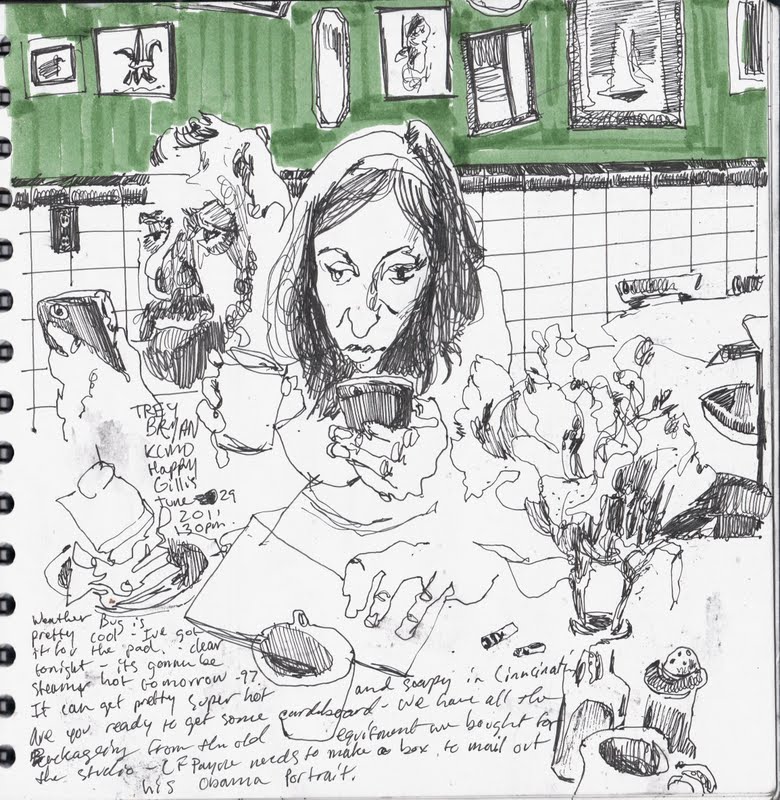 TREY
BRYAN
KCMO
Happy
Gillis
June 29
2011
1:30pm.
Weather Bug is
pretty cool - I've got
it for the pad. - clear
tonight - its gonna be
steamy hot tomorrow - 97.
It can get pretty super hot and soapy in Cinncinati
Are you ready to get some cardboard - we have all the
Packageing from the old equiptment we bought for
the studio - CF Payne needs to make a box to mail out
his Obama Portrait.